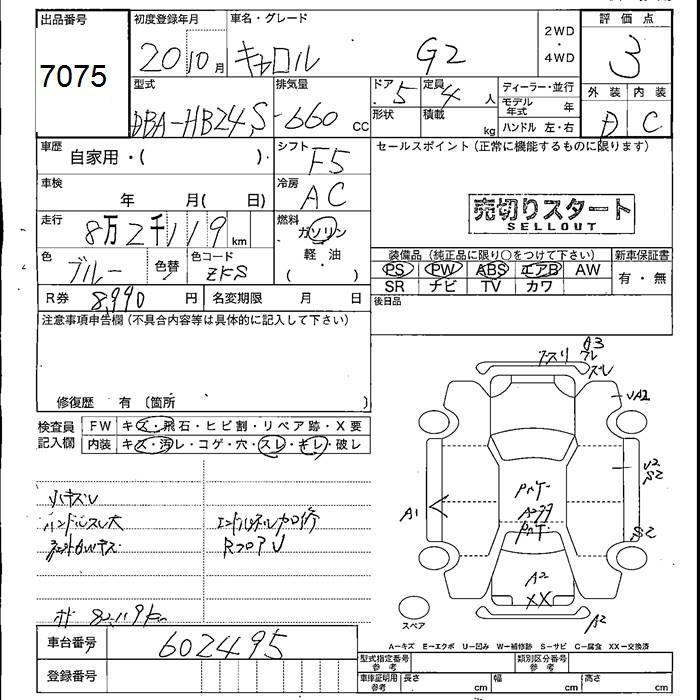 出品番号 初度登録年月 車名・グレード 評価点
7075 20 10月 キャロル G2 2WD・4WD 3
型式 排気量 ドア 5 定員 4 人 ディーラー・並行 外装 内装
DBA-HB24S -660 cc 形状 積載 kg モデル年式 年 D C
ハンドル 左・右
車歴 自家用・( )・ シフト F5 セールスポイント(正常に機能するものに限ります)
車検 年 月( 日) 冷房 AC
売切りスタート
SELLOUT
走行 8万2千119 km 燃料 ガソリン
軽・油
( )
色 ブルー 色替 色コード ZKS
装備品(純正品に限り○をつけて下さい) 新車保証書
PS PW ABS エアB AW 有・無
SR ナビ TV カワ
R券 8,990 円 名変期限 月 日 後日品
注意事項申告欄(不具合内容等は具体的に記入して下さい)
修復歴 有 〔箇所 〕
検査員記入欄 FW キズ・飛石・ヒビ割・リペア跡・X要
内装 キズ・汚レ・コゲ・穴・スレ・キレ・破レ
ハンドルスレ大
RフロアU
82,119km
A3
スレ
A1
S2
S2
A2
XX
A2
スペア
A-キズ E-エクボ U-凹み W-補修跡 S-サビ C-腐食 XX-交換済
車台番号 602495
登録番号
型式指定番号 参考 類別区分番号 参考
車庫証明用 参考 長さ cm 幅 cm 高さ cm